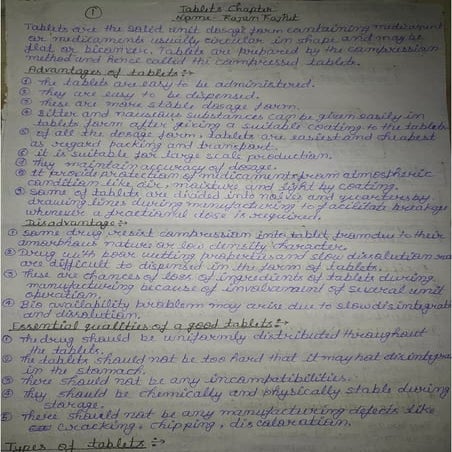 1
Tablets Chapter
Name- Rajan Rajput
Tablets are the solid unit dosage form containing medicament
or medicaments usually circular in shape and may be
flat or biconvex. Tablets are prepared by the compression
method and hence called the compressed tablets.
Advantages of tablets :→
① The tablets are easy to be administered.
② They are easy to be dispensed.
③ These are more stable dosage form.
④ Bitter and nauseous substances can be given easily in
tablets form after giving a suitable coating to the tablets
⑤ Of all the dosage form, tablets are easiest and cheapest
as regard packing and transport.
⑥ It is suitable for large scale production.
⑦ They maintain accuracy of dosage.
⑧ It provide protection of medicaments from atmospheric
condition like air, moisture and light by coating.
⑨ Some of tablets are divided into halves and quarters by
drawing lines during manufacturing to facilitate breakage
whenever a fractional dose is required.
Disadvantage :→
① Some drug resist compression into tablet from due to their
amorphous nature or low density character.
② Drug with poor wetting properties and slow dissolution
are difficult to dispensed in the form of tablets.
③ These are chances of loss of ingredients of tablets during
manufacturing because of involvement of several unit
operation.
④ Bio availability problem may arise due to slow disintegration
and dissolution.
Essential qualities of a good tablets :→
① The drug should be uniformly distributed throughout
the tablets.
② The tablets should not be too hard that it may not disintegrate
in the stomach.
③ There should not be any incompatibilities.
④ They should be chemically and physically stable during
storage.
⑤ There should not be any manufacturing defects like
cracking, chipping, discoloration.
Types of tablets :→